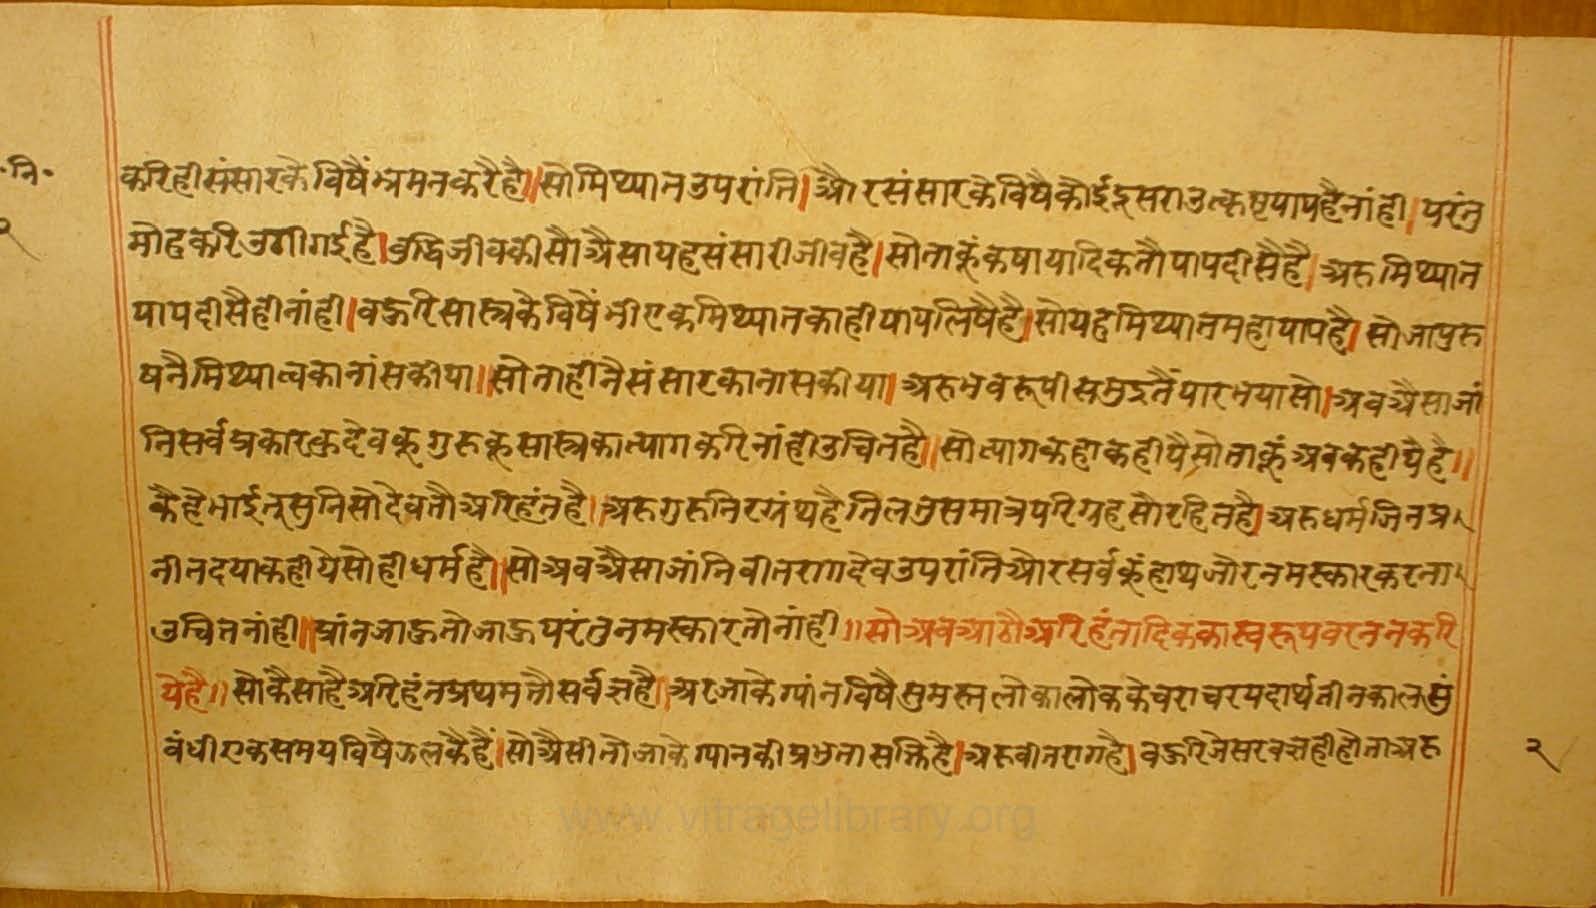 ·नि·
२
करिहीसंसारकेविषैंभ्रमनकरैहै॥सोमिथ्यातउपरांति।औरसंसारकेविषैकोईदूसराउत्कृष्टपापहैनांही।परंतु
मोहकरिठगीगईहै।बुद्धिजीवकीसोऐसायहसंसारीजीवहै।सोताकूंकषायादिकतौपापदीसैहै।अरुमिथ्यात
पापदीसैहीनांही।बहुरिसास्त्रकेविषैंभीएकमिथ्यातकाहीपापलिषैहै।सोयहमिथ्यातमहापापहै।सोजापुरु
षनैमिथ्यात्वकानांसकीया॥सोताहीनैसंसारकानासकीया।अरुभवरूपीसमुद्रतैंपारभयासो।अबऐसाजां
निसर्वप्रकारकुदेवकुगुरुकुसास्त्रकात्यागकरिनांहीउचितहै॥सोत्यागकहाकहीयैसोताकूंअबकहीयैहै॥
कैहैभाईतूसुनिसोदेवतौअरिहंतहै।अरुगुरुनिरग्रंथहैतिलतुसमात्रपरिग्रहसोरहितहै।अरुधर्मजिनप्र
नीतदयाकहीयेसोहीधर्महै॥सोअबऐसाजांनिवीतरागदेवउपरांतिऔरसर्वकूंहाथजोरनमस्कारकरना
उचितनांही॥प्रांनजाऊतोजाऊपरंतुनमस्कारतोनांही॥सोअबआठौअरिहंतादिककास्वरूपवरननकरि
येहै॥सोकैसाहैअरिहंतप्रथमतौसर्वज्ञहै।अरजाकेग्यांनविषैसुमस्तलोकालोककेचराचरपदार्थतीनकालसुं
बंधीएकसमयविषैझलकैहैं।सोऐसीतोजाकेग्यानकीप्रभुतासक्तिहै।अरुवीतरागहै।बहुरिजेसरवज्ञहीहोताअरु
२
www.vitragelibrary.org